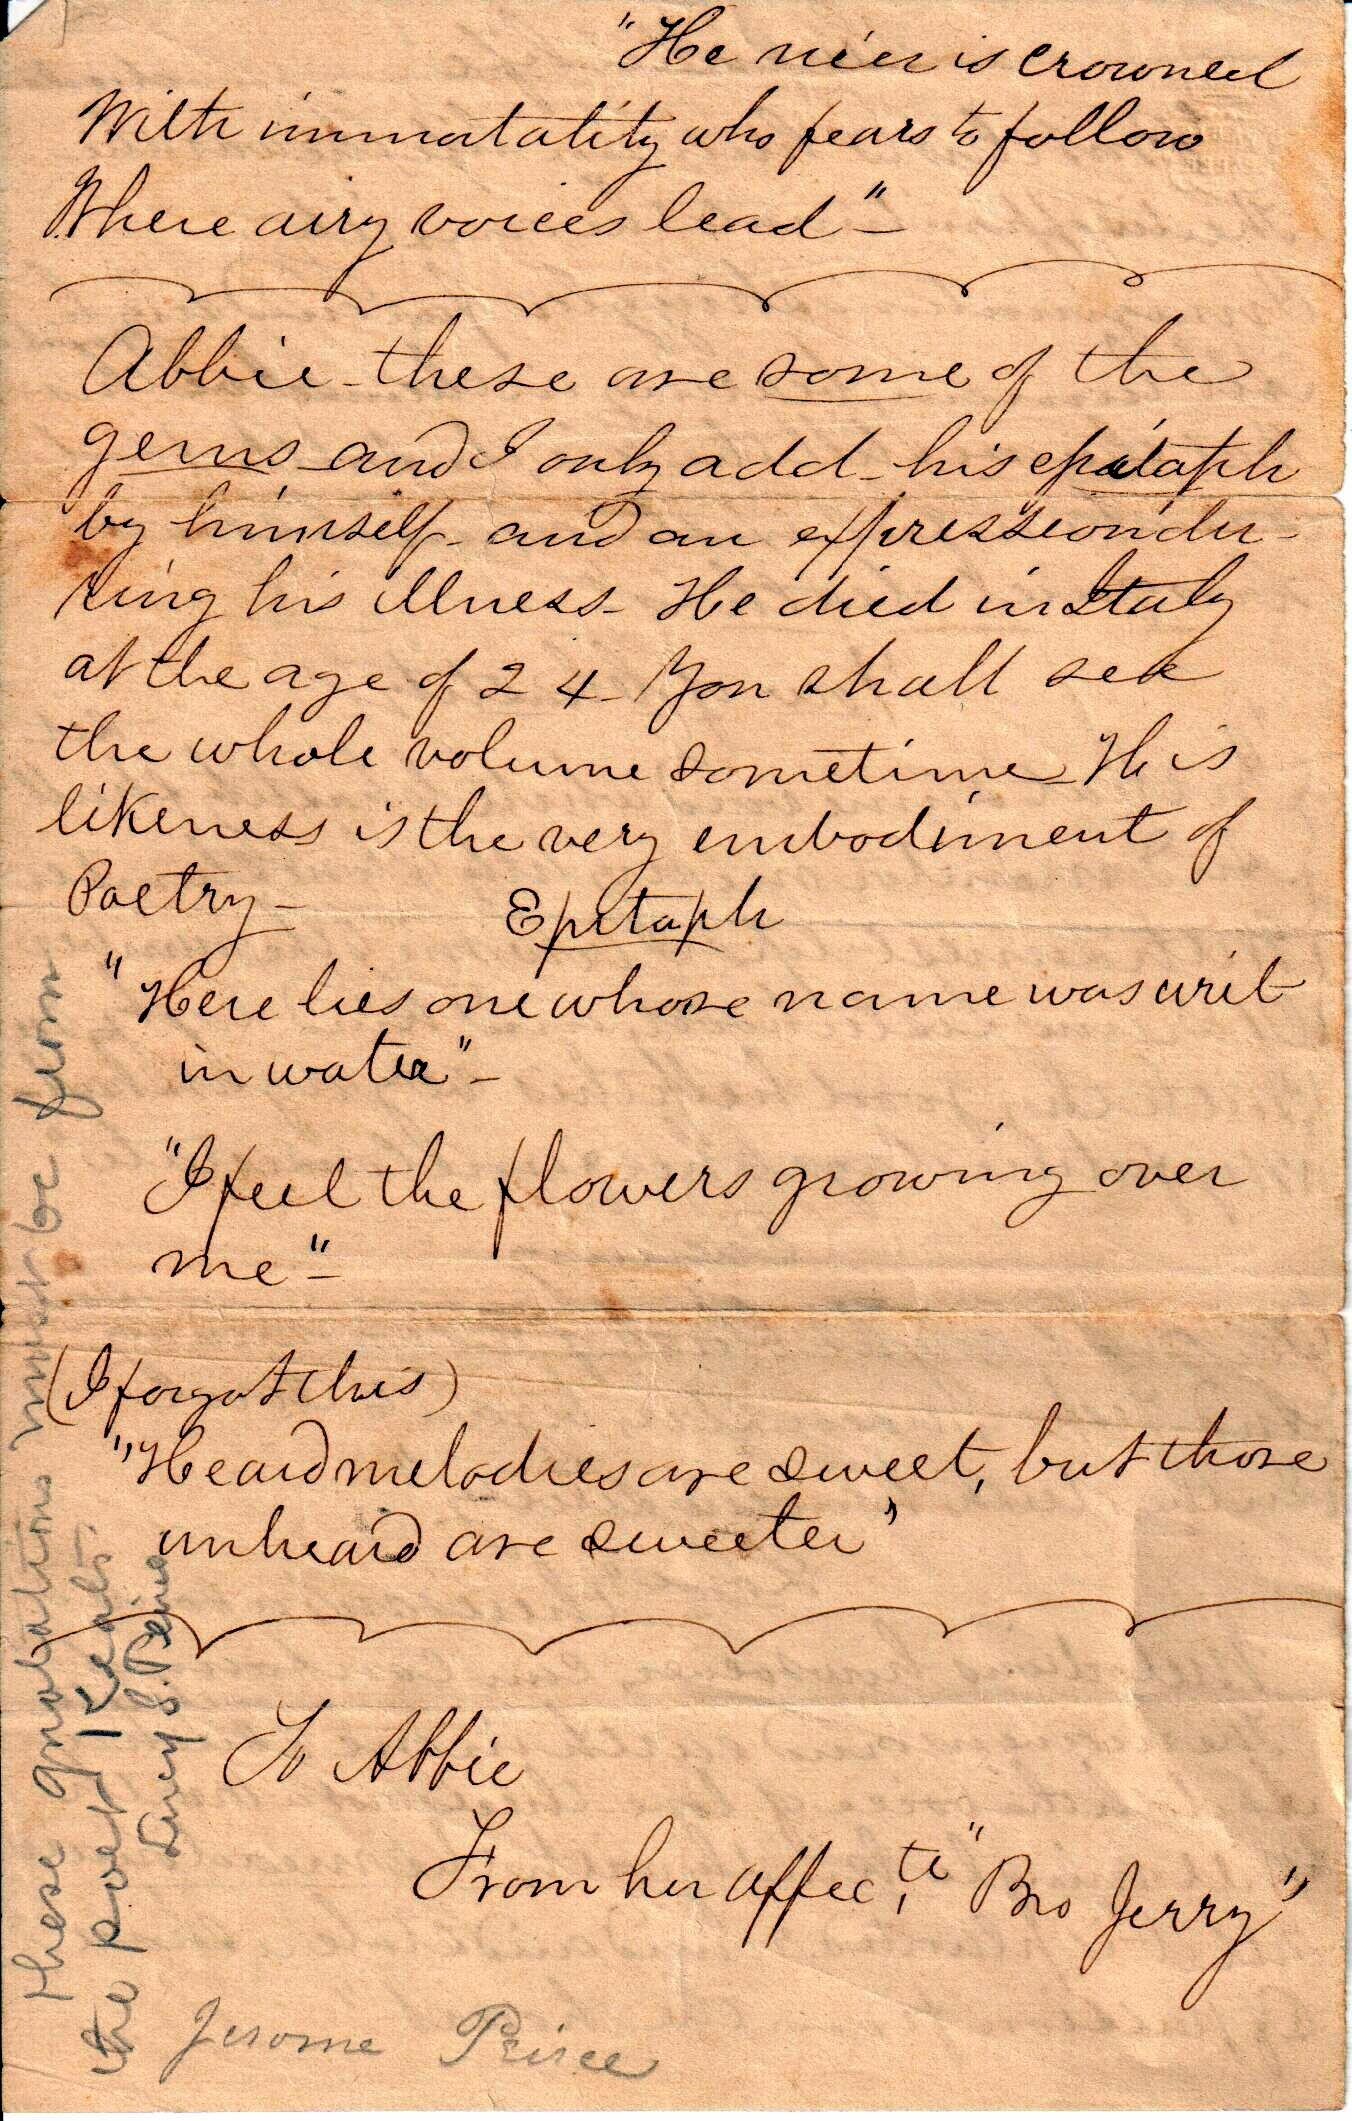 "He ne'er is crowned
With immortality who fears to follow
Where airy voices lead" –
Abbie – these are some of the
gems – and I only add – his epitaph
by himself – and an expression du-
ring his illness – He died in Italy
at the age of 24 – You shall see
the whole volume sometime – His
likeness is the very embodiment of
Poetry –
Epitaph
"Here lies one whose name was writ
in water" –
"I feel the flowers growing over
me" –
(I forgot this)
"Heard melodies are sweet, but those
unheard are sweeter"
To Abbie
From her affec.te "Bro Jerry"
Jerome Peirce
These quotations must be from
the poet Keats.
Lucy S. Peirce